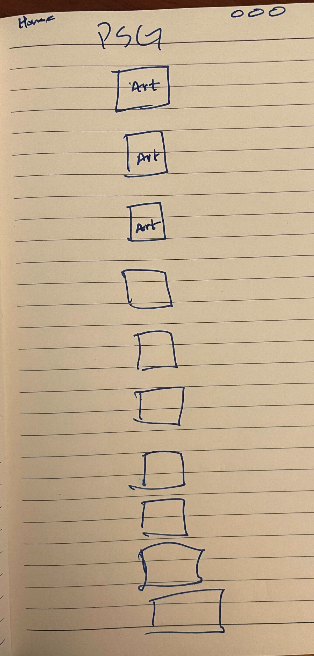 Home
PSG
Art
Art
Art